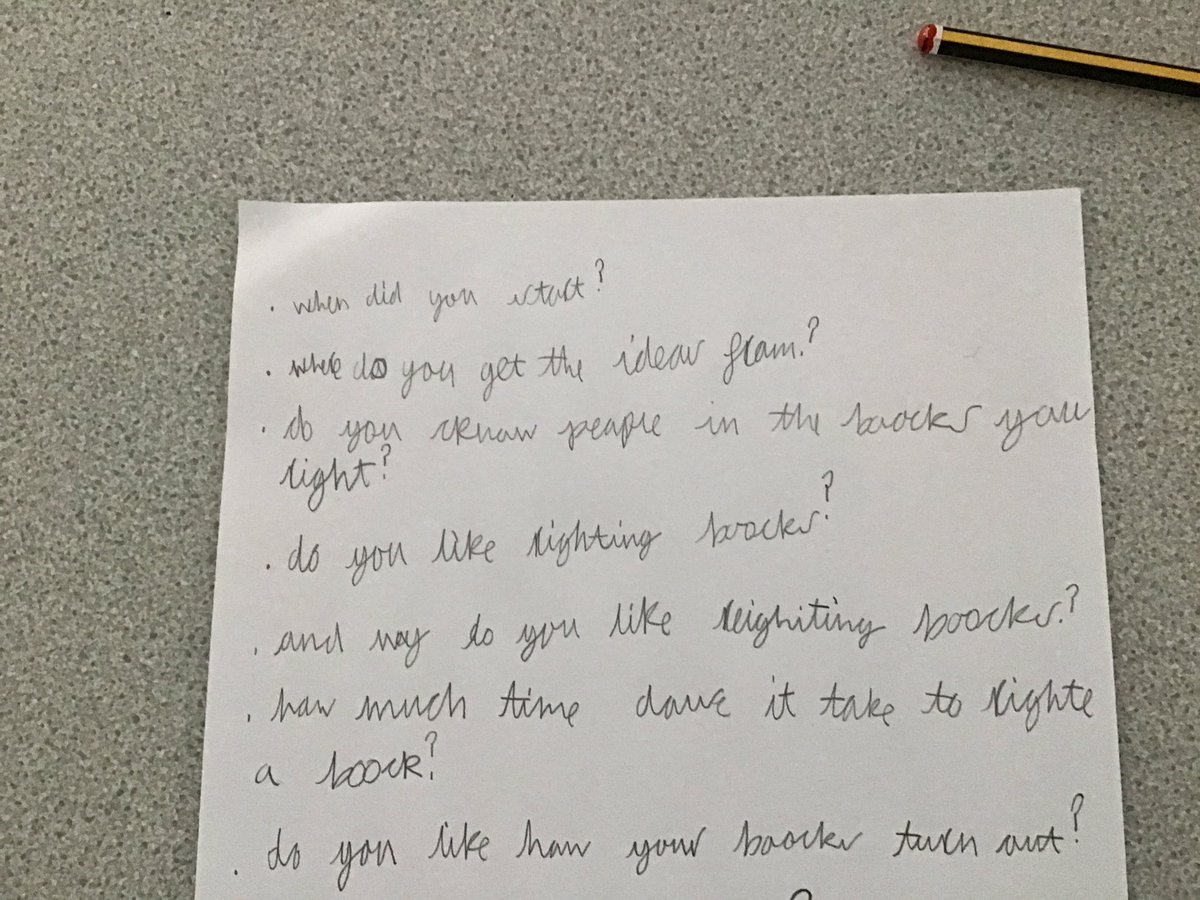 . when did you start?
. where do you get the idear from.?
. do you cknow people in the boocks you
right?
. do you like righting boocks?
. and way do you like reighiting boocks.?
. how much time dowe it take to righte
a boock?
. do you like how your boocks turn out?